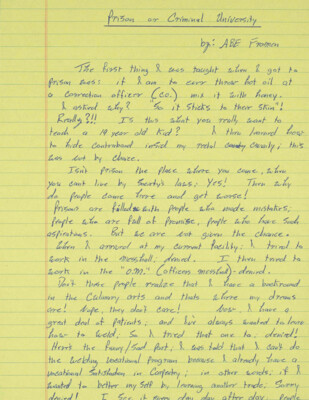 Prison or Criminal University
by: ABE
The first thing I was taught when I got to
prison was: if I have to ever throw hot oil at
a correction officer (co.) mix it with honey.
I asked why? "So it sticks to their skin"!
Really?!! Is this what you really want to
teach a 19 year old kid? I then learned how
to hide contraband inside my rectal cavity; this
was not by choice.
Isn't prison the place where you come, when
you cant live by Society's laws. Yes! Then why
do people come here and get worse!
Prisons are filled with people who made mistakes;
people who are full of promise, people who have such
aspirations. But we are not given the chance.
When I arrived at my current facility; I tried to
work in the messhall; denied. I then tried to
work in the "O.M." (officers messhall)-denied.
Don't these people realize that I have a background
in the Culinary arts and thats where my dreams
are! Nope, they don't care! I have a
great deal of patients; and have always wanted to learn
how to weld; So I tried that one to; denied!
Here's the funny/sad part; I was told that I can't do
the welding vocational program because I already have a
vocational Satisfaction in Carpentry; in other words; if I
wanted to better my self by learning another trade. Sorry
denied! I see it every day after day,